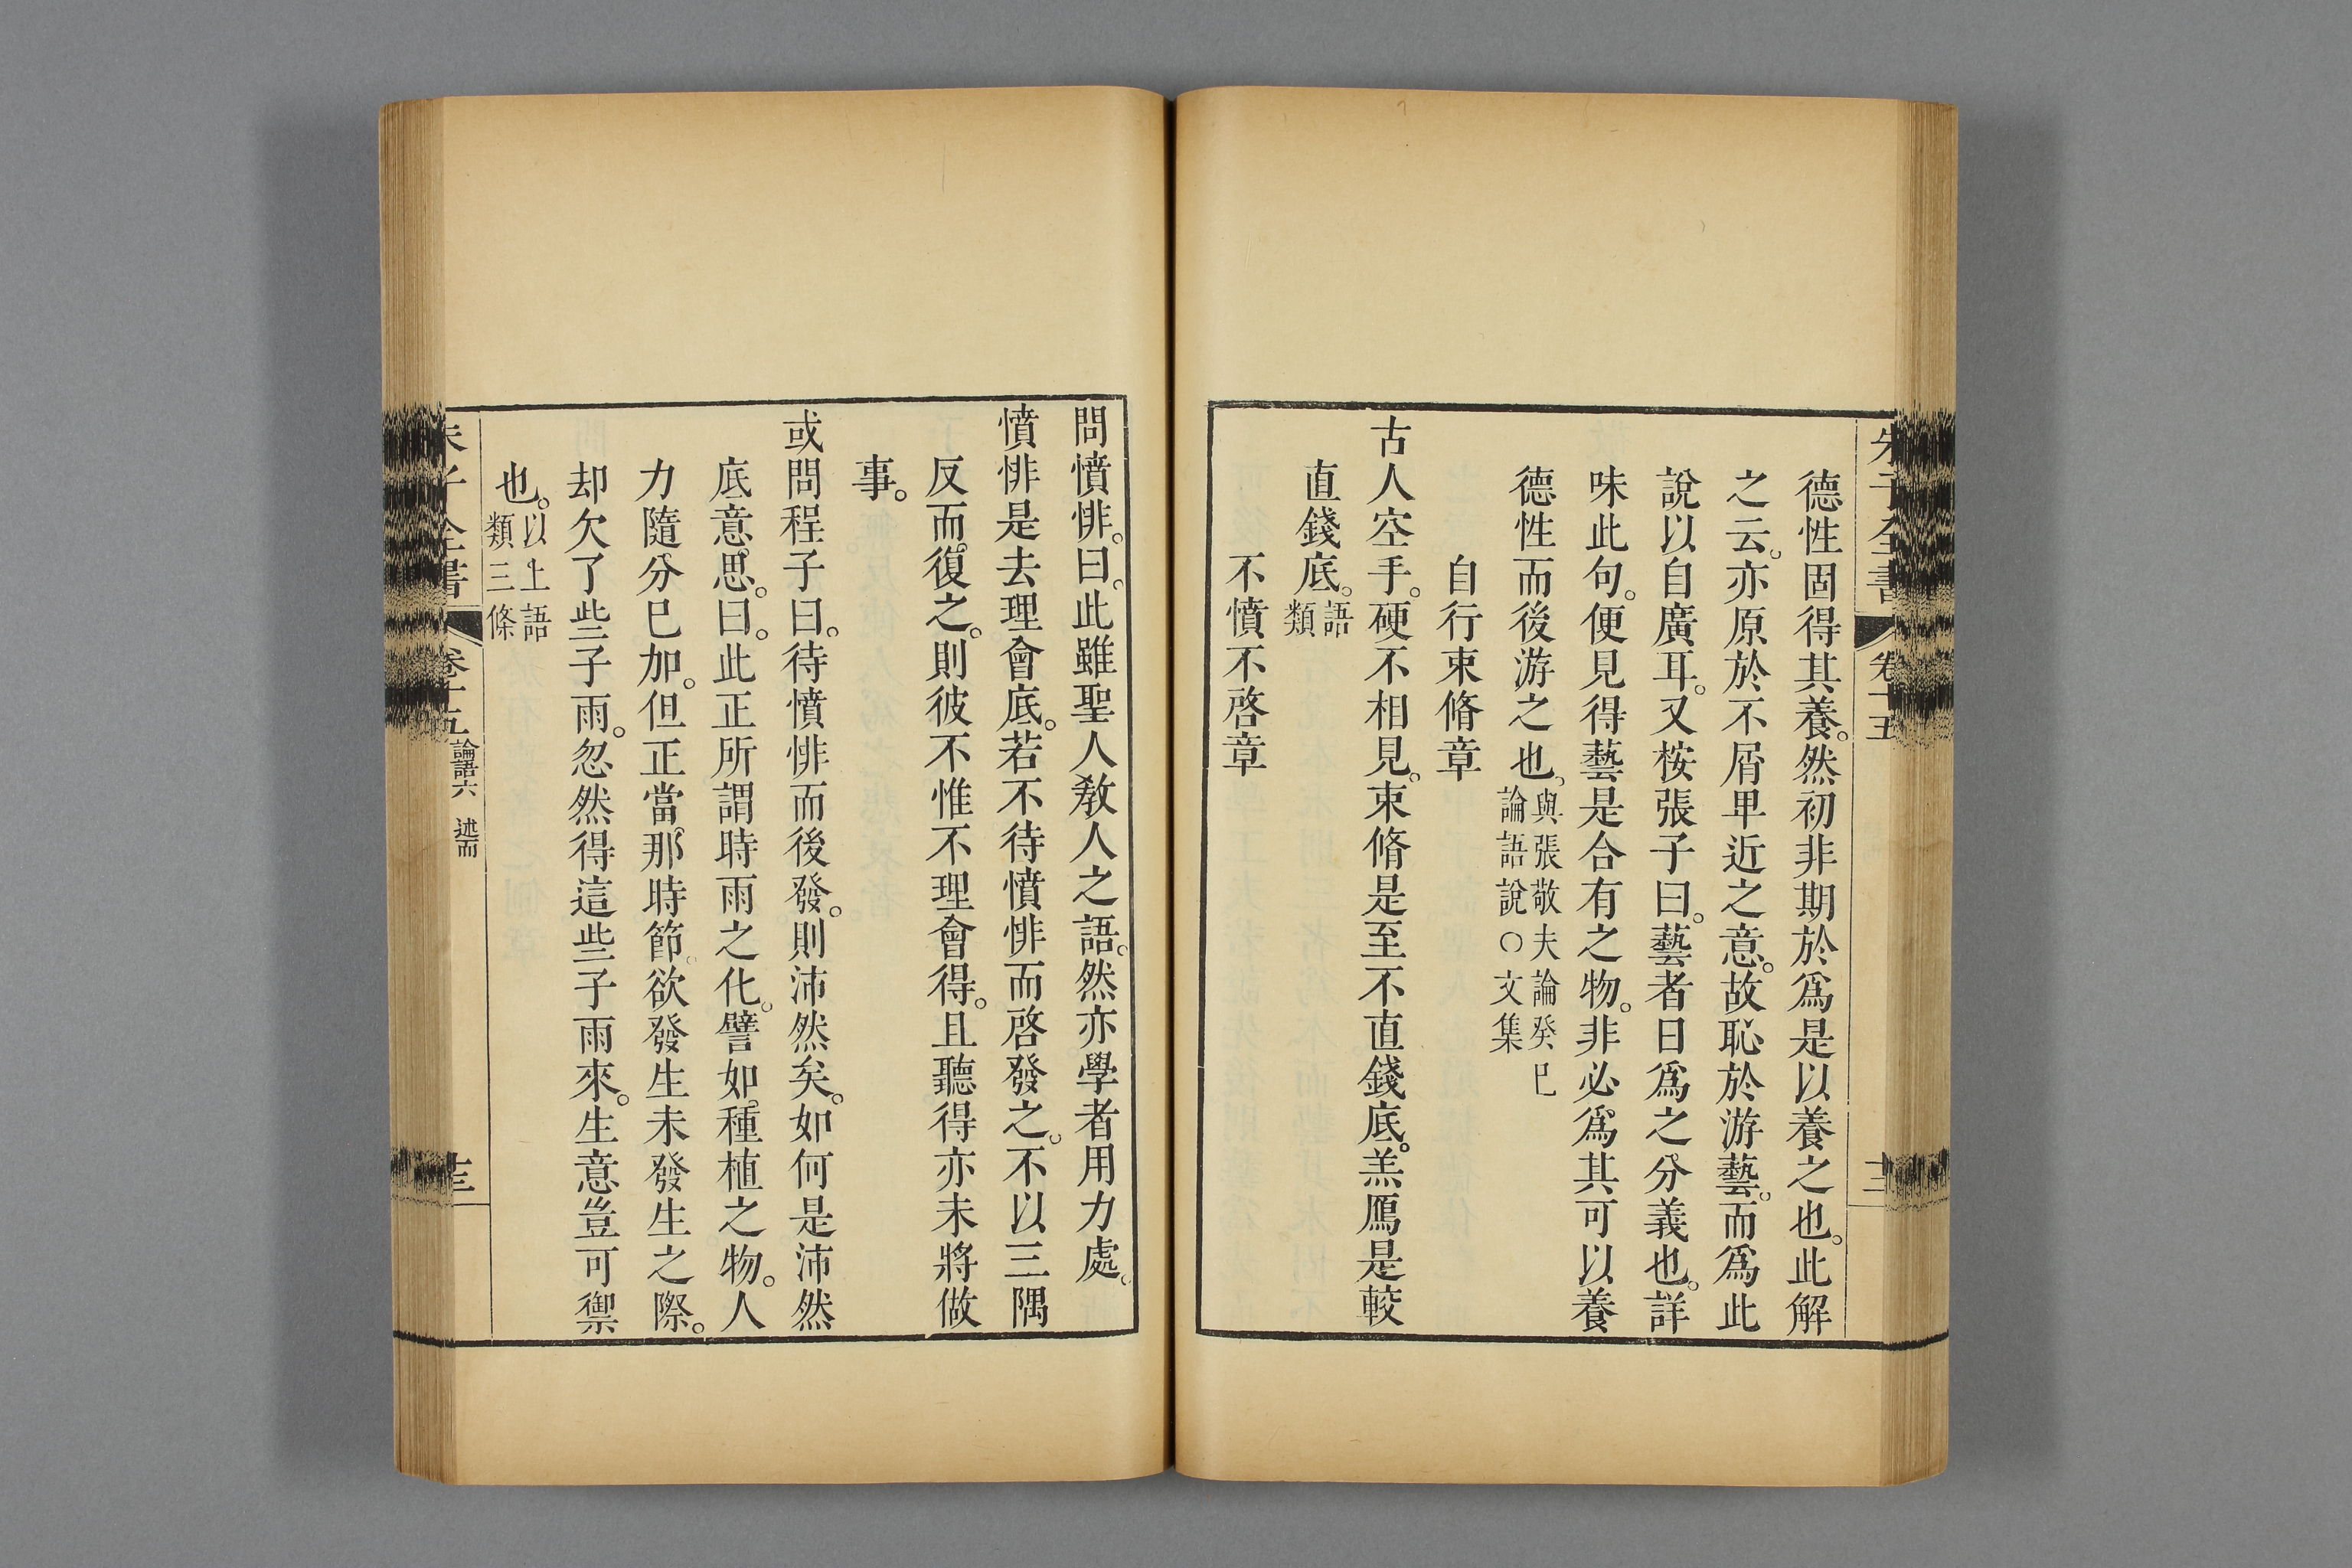 朱子全書 卷十五
德性固得其養。然初非期於爲是以養之也。此解
之云。亦原於不屑卑近之意。故恥於游藝。而爲此
說以自廣耳。又桉張子曰。藝者日爲之分義也。詳
味此句。便見得藝是合有之物。非必爲其可以養
德性而後游之也。與張敬夫論癸巳
論語說○文集
自行束脩章
古人空手。硬不相見。束脩是至不直錢底。羔鴈是較
直錢底。語
類
不憤不啓章
問憤悱。曰。此雖聖人教人之語。然亦學者用力處。
憤悱是去理會底。若不待憤悱而啓發之。不以三隅
反而復之。則彼不惟不理會得。且聽得亦未將做
事。
或問程子曰。待憤悱而後發。則沛然矣。如何是沛然
底意思。曰。此正所謂時雨之化。譬如種植之物。人
力隨分已加。但正當那時節。欲發生未發生之際。
却欠了些子雨。忽然得這些子雨來。生意豈可禦
也。以上語
類三條
朱子全書 卷十五 論語六 述而